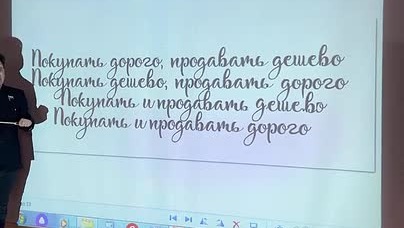 Покупать дорого, продавать дешево
Покупать дешево, продавать дорого
Покупать и продавать дешево
Покупать и продавать дорого